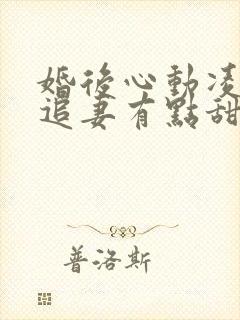 婚後心動凌
追妻有點甜
普洛斯